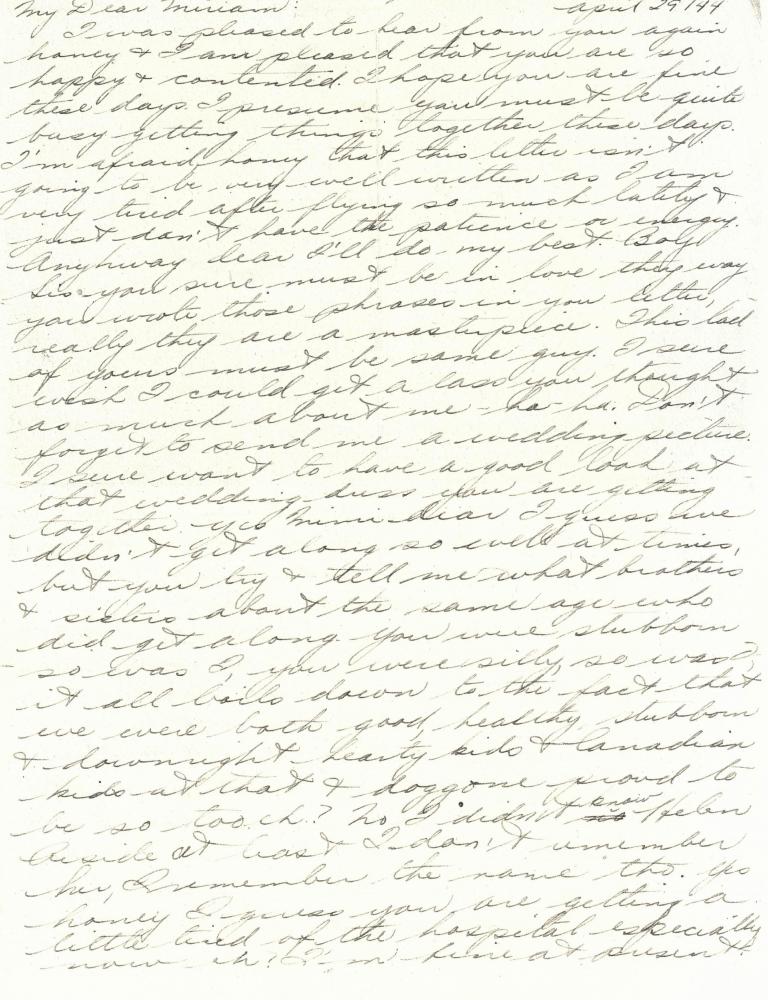 My Dear Miriam: April 29/44
I was pleased to hear from you again
honey & I am pleased that you are so
happy & contented. I hope you are fine
these days. I presume you must be quite
busy getting things together these days.
I'm afraid honey that this letter isn't
going to be very well written as I am
very tired after flying so much lately &
just don't have the patience or energy.
Anyhway dear I'll do my best. Boy
Sis you sure must be in love they way
you wrote those phrases in you letter,
really they are a masterpiece. This lad
of yours must be some guy. I sure
wish I could get a lass you thought
as much about me - ha- ha. Don't
forget to send me a wedding picture.
I sure want to have a good look at
that wedding dress you are getting
together. Yes Mimi dear I guess we
didn't get along so well at times,
but you try & tell me what brothers
& sisters about the same age who
did get along. You were stubborn
so was I, you were silly, so was I,
it all boils down to the fact that
we were both good, healthy, stubborn
& downright hearty kids & Canadian
kids at that & doggone proud to
be so too. eh? No I didn't know Helen
at least I don't remember
her, I remember the name tho. Yes
honey I guess you are getting a
little tired of the hospital especially
now eh? I'm fine at present.